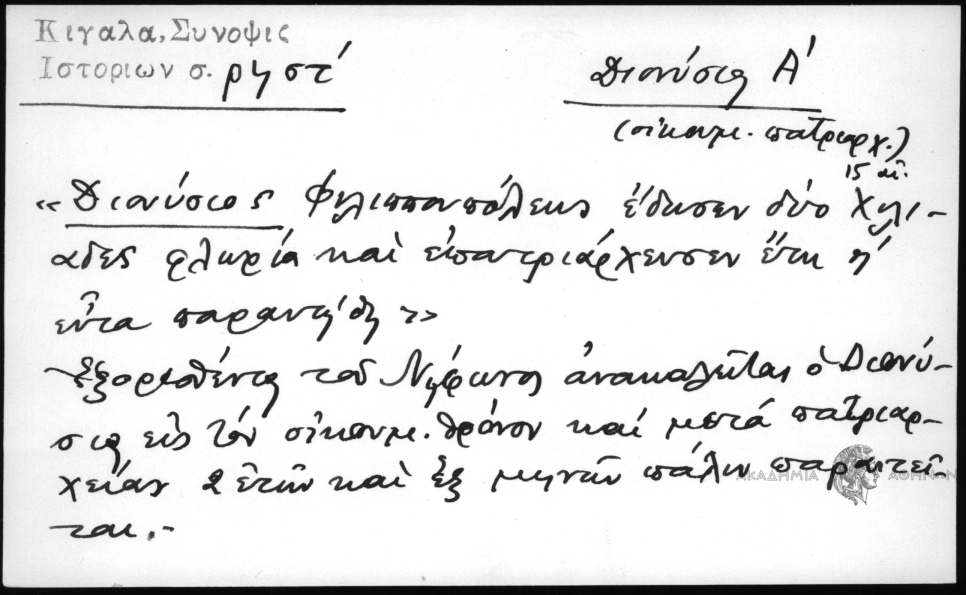 Κιγαλα, Συνοψις
Ιστοριων σ. ρηστ́
Διονύσιος Α'
(οἰκουμ. πατριαρχ.)
15 αἰ.
«Διονύσιος Φιλιππουπόλεως ἔδωσεν δύο χιλι-
άδες φλωρία καὶ ἐπατριάρχευσεν ἔτη η'
εὖτα παρῃτήθη»
Ἐξορισθέντος τοῦ Νήφωνος ἀνακαλεῖται ὁ Διονύ-
σιος εἰς τόν οἰκουμ. θρόνον καί μετά πατριαρ-
χείαν 2 ἐτῶν καὶ ἕξ μηνῶν πάλιν παραιτεῖ-
ται.-
ΑΚΑΔΗΜΙΑ ΑΘΗΝΩΝ